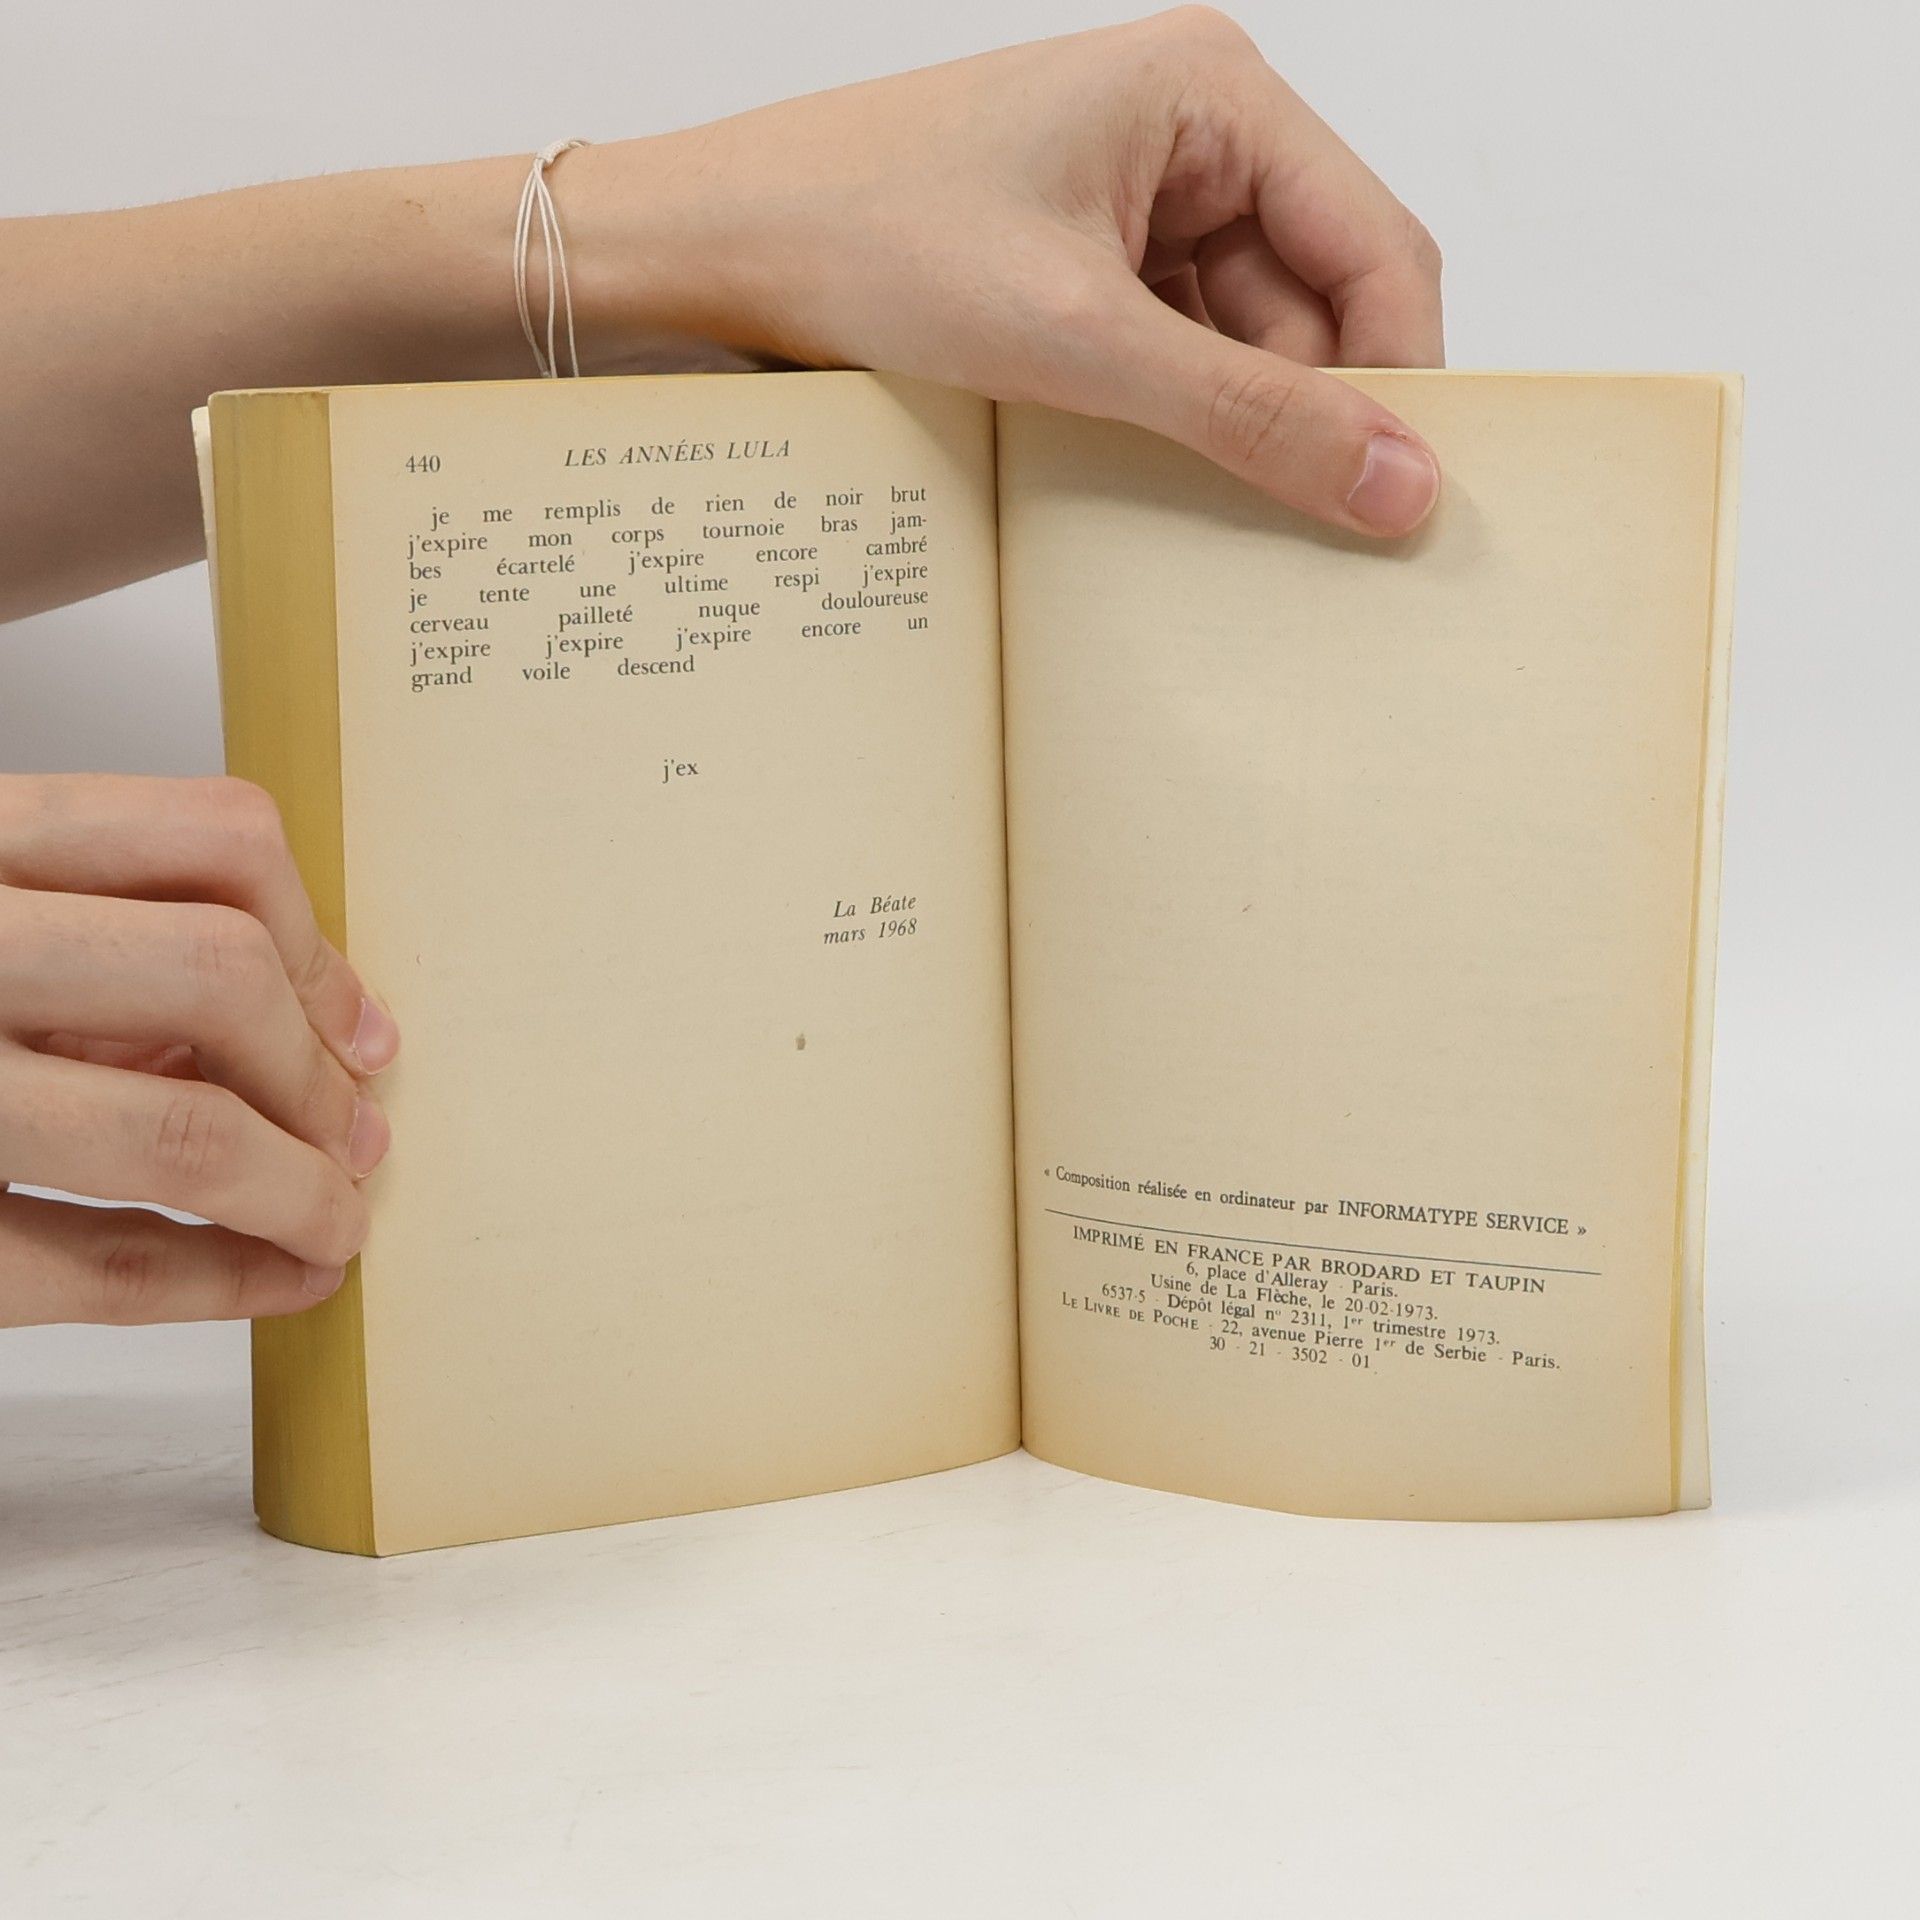 440 LES ANNÉES LULA
je me remplis de rien de noir brut
j'expire mon corps tournoie bras jam-
bes écartelé j'expire encore cambré
je tente une ultime respi j'expire
cerveau pailleté nuque douloureuse
j'expire j'expire j'expire encore un
grand voile descend
j'ex
La Béate
mars 1968
« Composition réalisée en ordinateur par INFORMATYPE SERVICE »
IMPRIMÉ EN FRANCE PAR BRODARD ET TAUPIN
6, place d'Alleray - Paris.
Usine de La Flèche, le 20-02-1973.
6537-5 - Dépôt légal nº 2311, 1er trimestre 1973.
LE LIVRE DE POCHE - 22, avenue Pierre 1er de Serbie - Paris.
30 - 21 - 3502 - 01